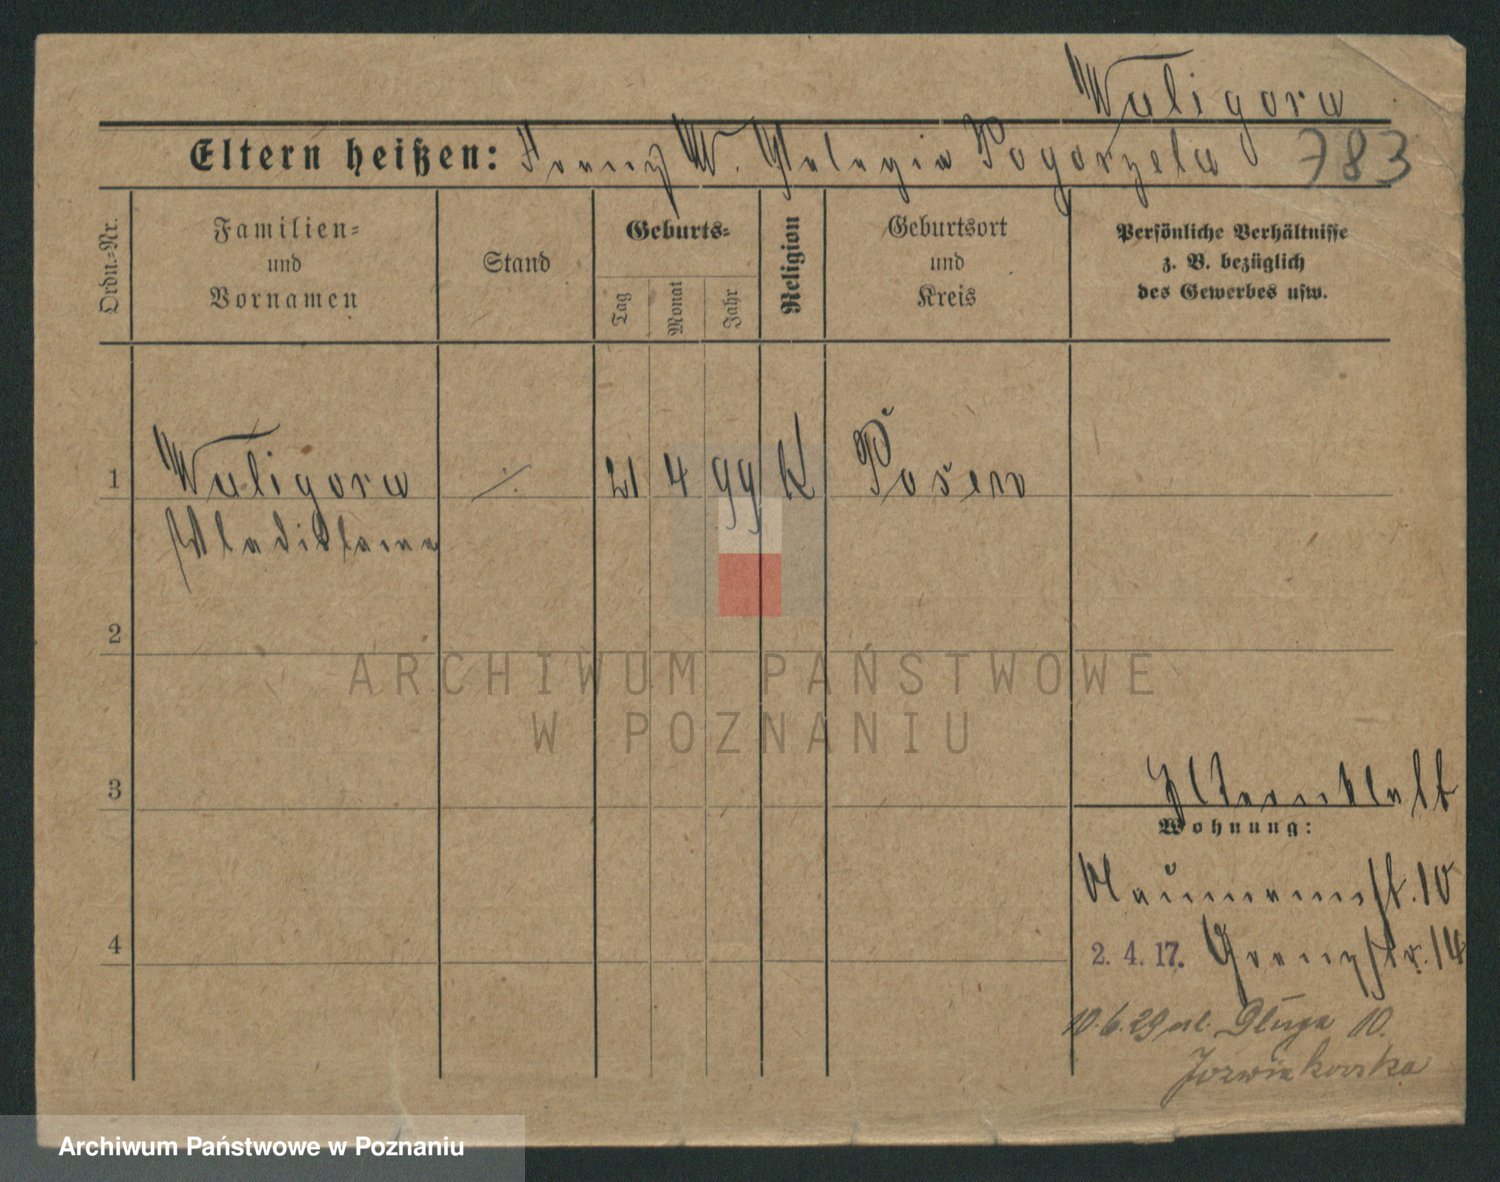 Waligora
Eltern heißen: Franz W. Pelagia Pogorzela 783
Ordn.=Nr.
Familien=
und
Vornamen
Stand
Geburts=
Tag
Monat
Jahr
Religion
Geburtsort
und
Kreis
Persönliche Verhältnisse
z. B. bezüglich
des Gewerbes usw.
1 Waligora ⁒ 21 4 99 K Posen
Wladislawa
2
ARCHIWUM PAŃSTWOWE
W POZNANIU
3
Wohnung:
Naumannst. 10
4
2. 4. 17. Grenzstr. 14
10.6.29 ul. Długa 10.
Jozwiakowska
Archiwum Państwowe w Poznaniu